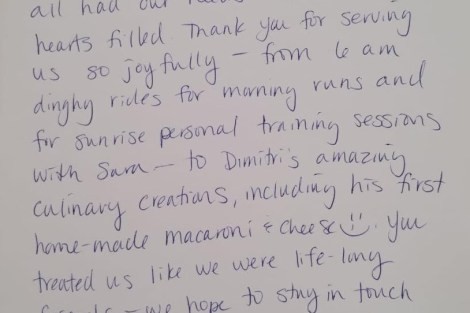 all had our
hearts filled. Thank you for serving
us so joyfully — from 6 am
dinghy rides for morning runs and
for sunrise personal training sessions
with Sara — to Dimitri's amazing
culinary creations, including his first
home-made macaroni & cheese :) . You
treated us like we were life-long
— we hope to stay in touch